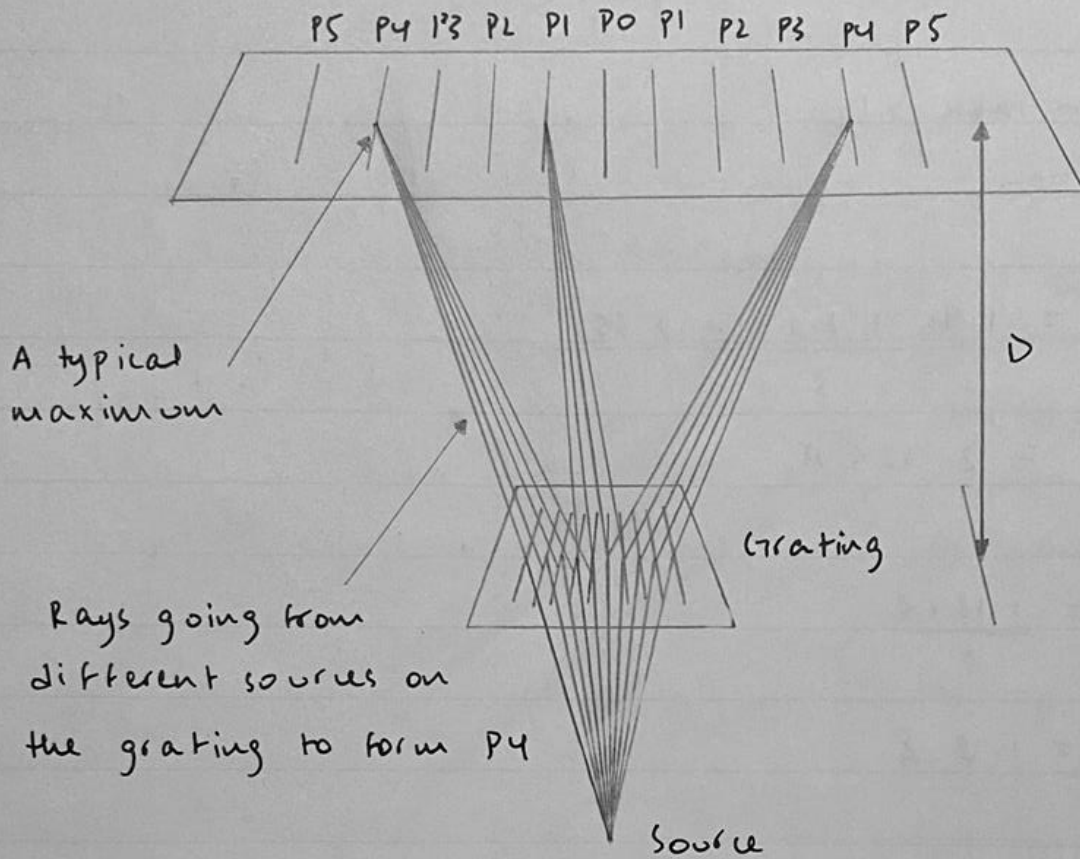 P5 P4 P3 P2 P1 P0 P1 P2 P3 P4 P5
A typical
maximum
D
Grating
Rays going from
different sources on
the grating to form P4
Source